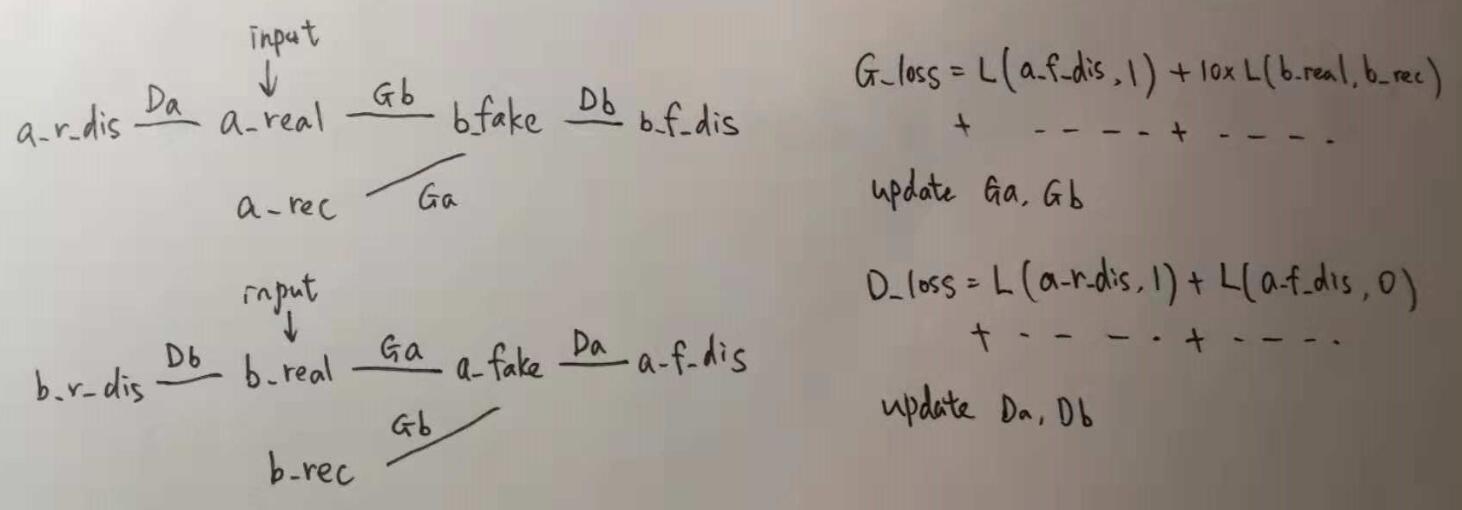 input
a_r_dis Da a_real Gb b_fake Db b_f_dis
a_rec Ga
input
b_r_dis Db b_real Ga a_fake Da a_f_dis
Gb
b_rec
G_loss = L(a_f_dis, 1) + 10x L(b_real, b_rec)
+ - - - - + - - - .
update Ga, Gb
D_loss = L(a_r_dis, 1) + L(a_f_dis, 0)
+ - - - . + - - - .
update Da, Db